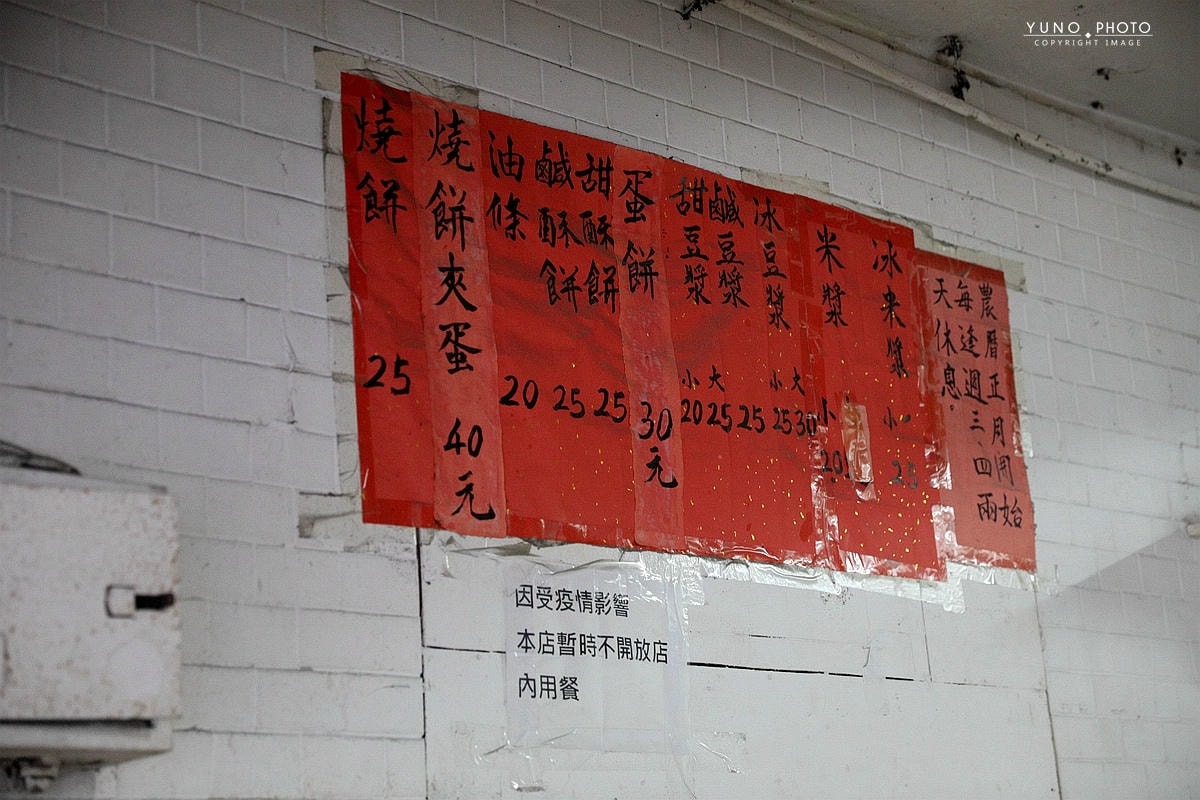 YUNO PHOTO
COPYRIGHT IMAGE
燒餅 25
燒餅夾蛋 40元
油條 20
鹹酥餅 25
甜酥餅 25
蛋餅 30元
甜豆漿 小20 大25
鹹豆漿 25
冰豆漿 小25 大30
米漿 小 20
冰米漿 小 25
農曆正月開始
每逢週三、四兩
天休息。
因受疫情影響
本店暫時不開放店
內用餐